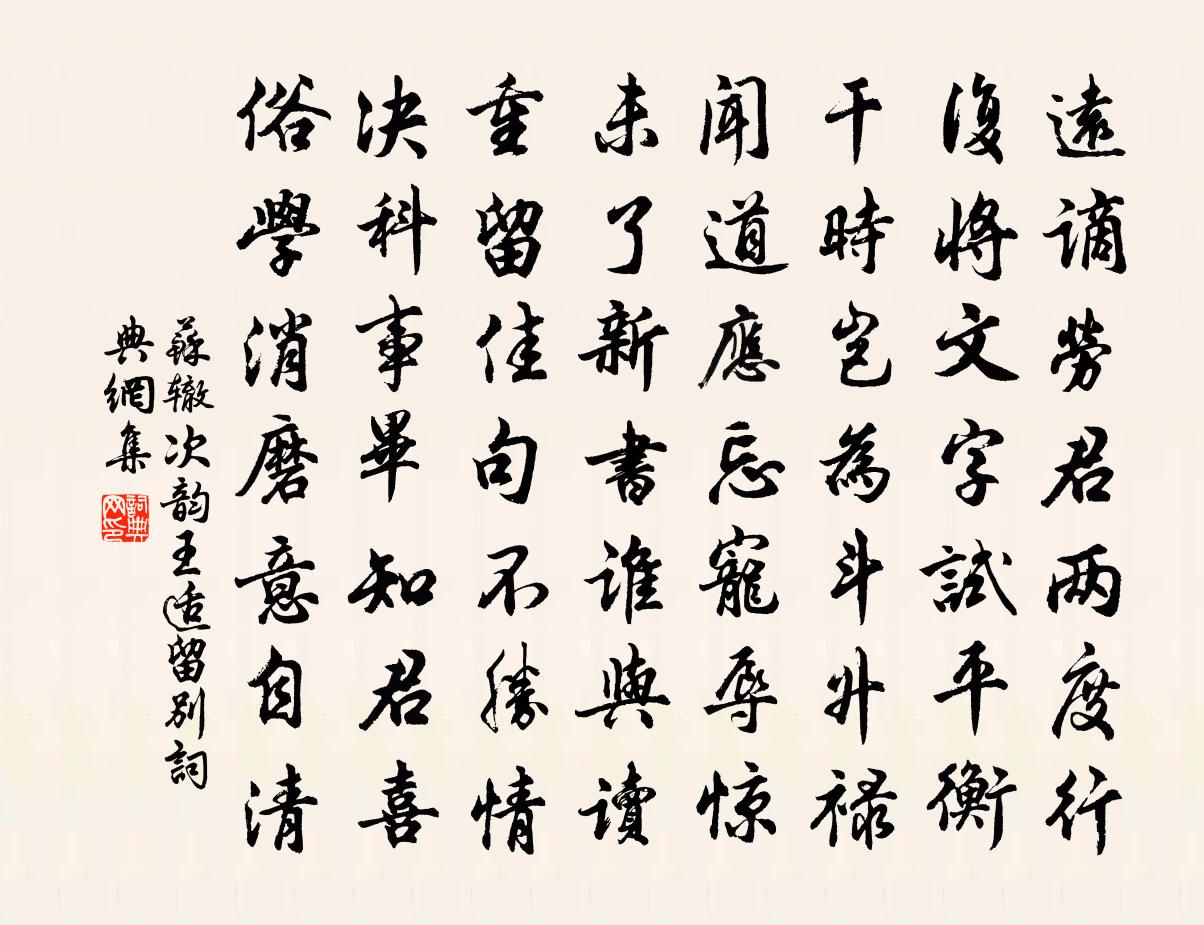 遠謫勞君兩度行
復將文字試平衡
干時豈為斗升祿
聞道應忘寵辱惊
未了新書誰與讀
重留佳句不勝情
决科事畢知君喜
俗學消磨意自清
蘇辙次韵王适留別詞
典網集
詞典
网印